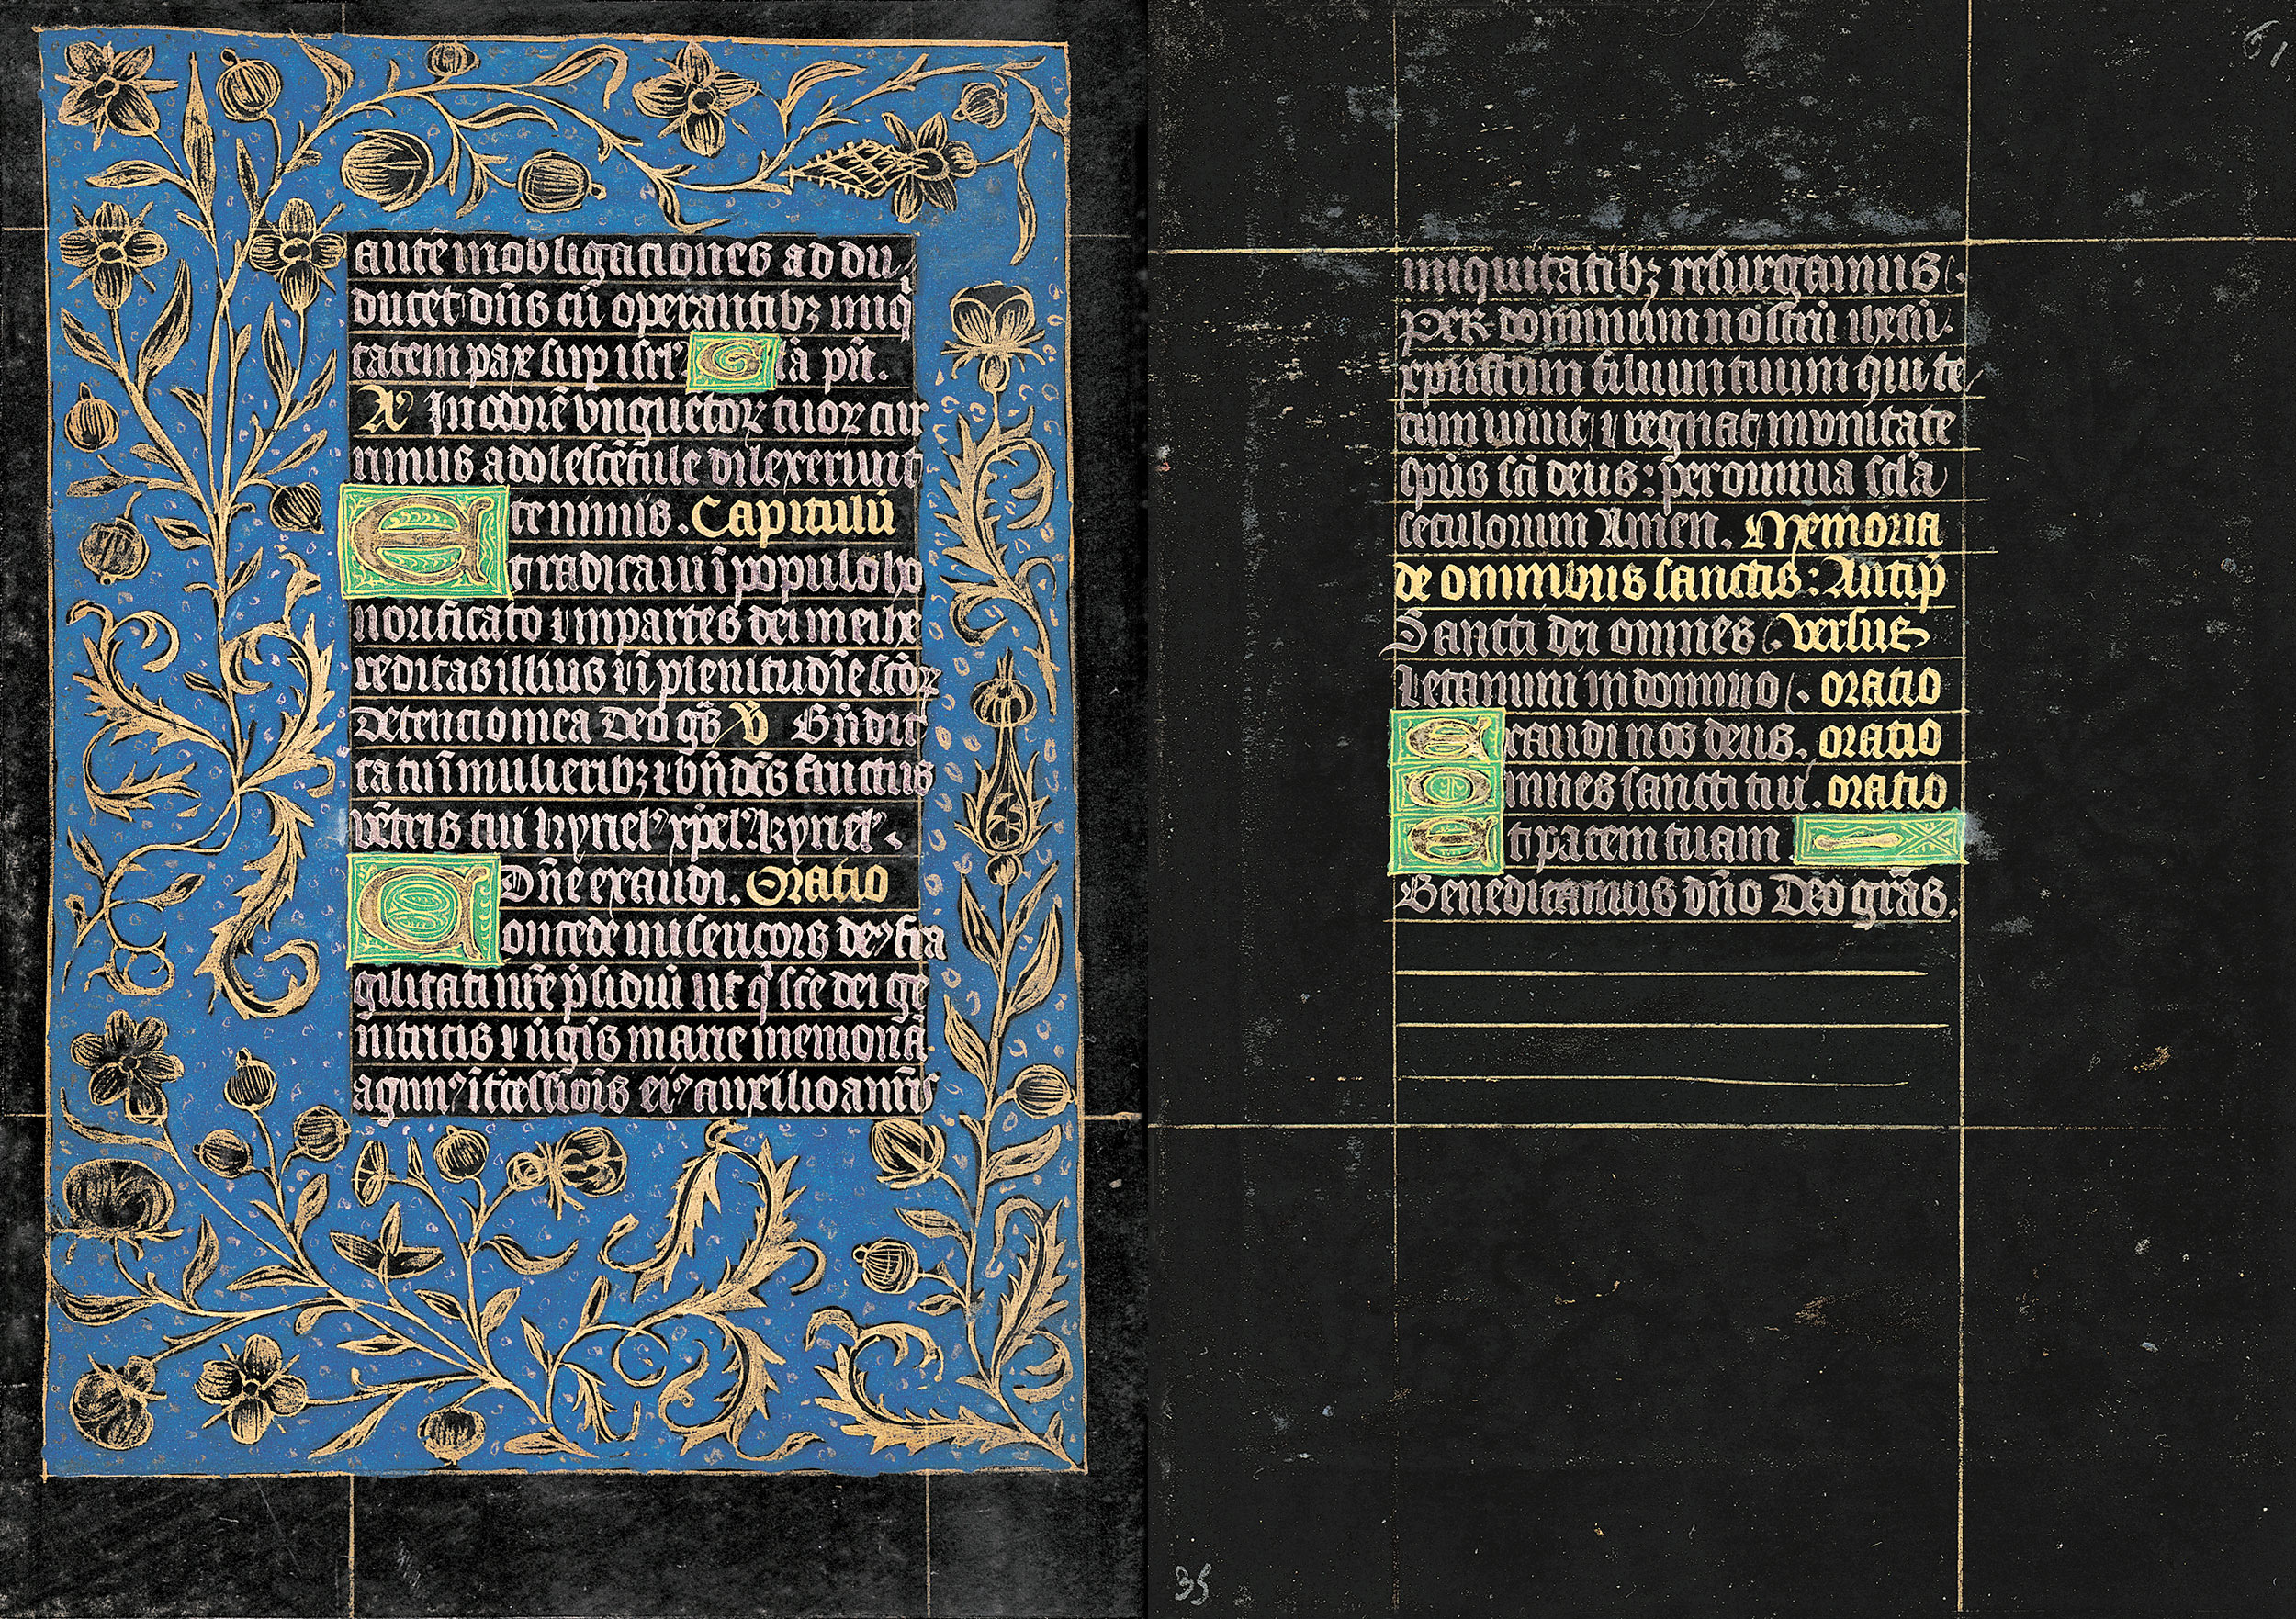 autē in obligationes ad du
ducet dn̄s cū operantibꝫ iniq̄
tatem pax sup isrl' Gl'ia pr̄i.
A' In odorē vnguētoꝝ tuoꝝ cur
rimus adolescētule dilexerunt
te nimis. Capitulū
Et radicaui ī populo ho
norificato ⁊ in partes dei mei he
reditas illius ⁊ ī plenitudīe sc̄oꝝ
detencio mea Deo gr̄s V̄ Bn̄dic
ta tu ī mulieribꝫ ⁊ bn̄dc̄s fructus
vētris tui kyriel' xp̄el' kyriel'.
Dn̄e exaudi. Oratio
Concede misericors deꝰ fra
gilitati nr̄e p̄sidiū ut q̄ sc̄e dei ge
nitricis ⁊ ūgīs marie memoriā
agimꝰ īt̄cessiōis eiꝰ auxilio a nr̄is
61
iniquitatibꝫ resurgamus.
Per dominum nostrū ihesū.
xpristum filium tuum qui te
cum uiuit ⁊ regnat in vnitate
sp̄us sc̄i deus: per omnia scl'a
seculorum Amen. Memoria
de omnibus sanctis: Antip̄
Sancti dei omnes. versus
Letamini in domino. oratio
Exaudi nos deus. oratio
Omnes sancti tui. oratio
Et pacem tuam
Benedicamus dn̄o Deo gr̄as.
35